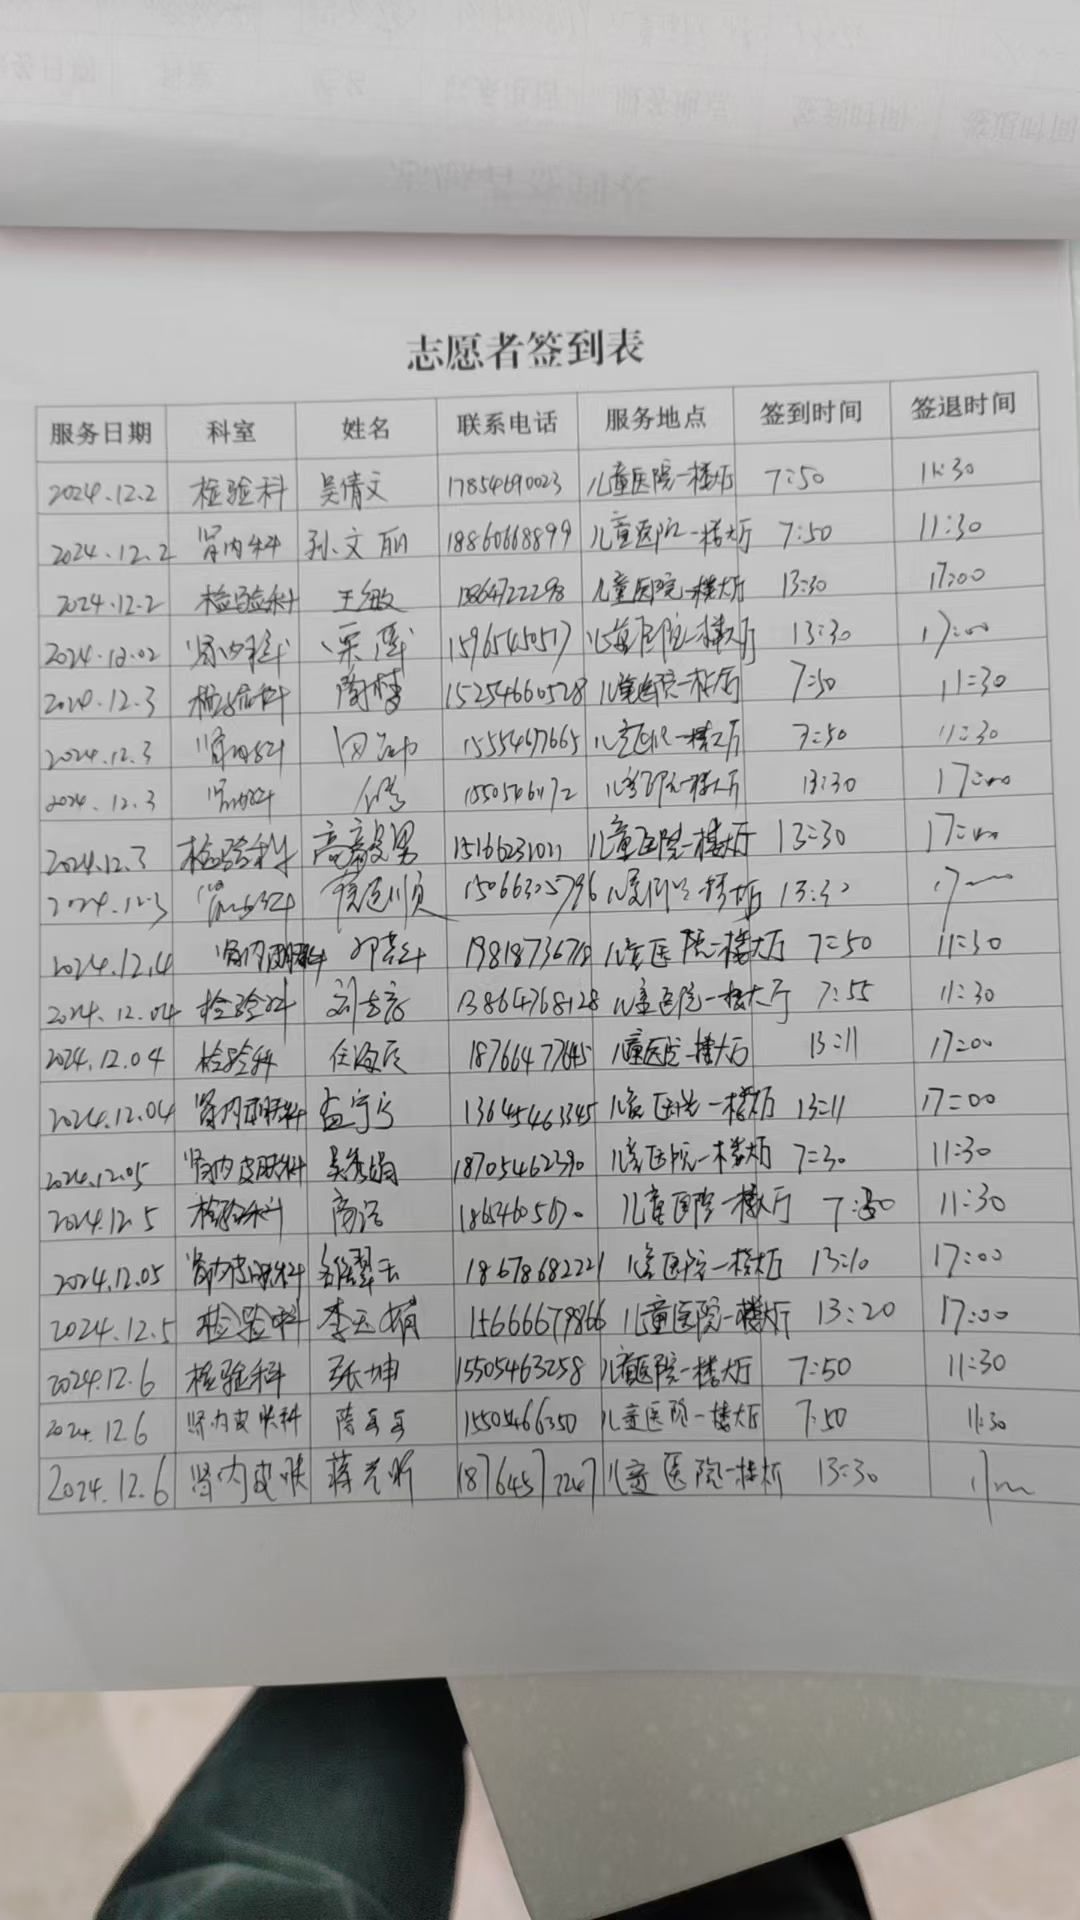 志愿者签到表
服务日期 科室 姓名 联系电话 服务地点 签到时间 签退时间
2024.12.2 检验科 吴倩文 17854690023 儿童医院一楼大厅 7:50 11:30
2024.12.2 肾内科 孙文丽 18860668899 儿童医院一楼大厅 7:50 11:30
2024.12.2 检验科 王敏 儿童医院一楼大厅 13:30 17:00
2024.12.02 肾内科 儿童医院一楼大厅 13:30 17:00
2024.12.3 检验科 15254660528 儿童医院一楼大厅 7:50 11:30
2024.12.3 肾内科 15554677665 儿童医院一楼大厅 7:50 11:30
2024.12.3 肾内科 儿童医院一楼大厅 13:30 17:00
2024.12.3 检验科 15166231011 儿童医院一楼大厅 13:30 17:00
2024.12.3 肾内科 15066305796 儿童医院一楼大厅 13:30
2024.12.4 肾内 儿童医院一楼大厅 7:50 11:30
2024.12.04 检验科 13864768128 儿童医院一楼大厅 7:55 11:30
2024.12.04 检验科 18766477645 儿童医院一楼大厅 13:11 17:00
2024.12.04 肾内皮肤科 孟宁宁 13645463345 儿童医院一楼大厅 13:11 17:00
2024.12.05 肾内皮肤科 吴秀娟 18705462390 儿童医院一楼大厅 7:30 11:30
2024.12.5 检验科 儿童医院一楼大厅 11:30
2024.12.05 肾内皮肤科 18678682221 儿童医院一楼大厅 13:10 17:00
2024.12.5 检验科 李玉娟 15666679866 儿童医院一楼大厅 13:20 17:00
2024.12.6 检验科 张坤 15505463258 儿童医院一楼大厅 7:50 11:30
2024.12.6 肾内皮肤科 15505466350 儿童医院一楼大厅 7:50 11:30
2024.12.6 肾内皮肤 18764577247 儿童医院一楼大厅 13:30